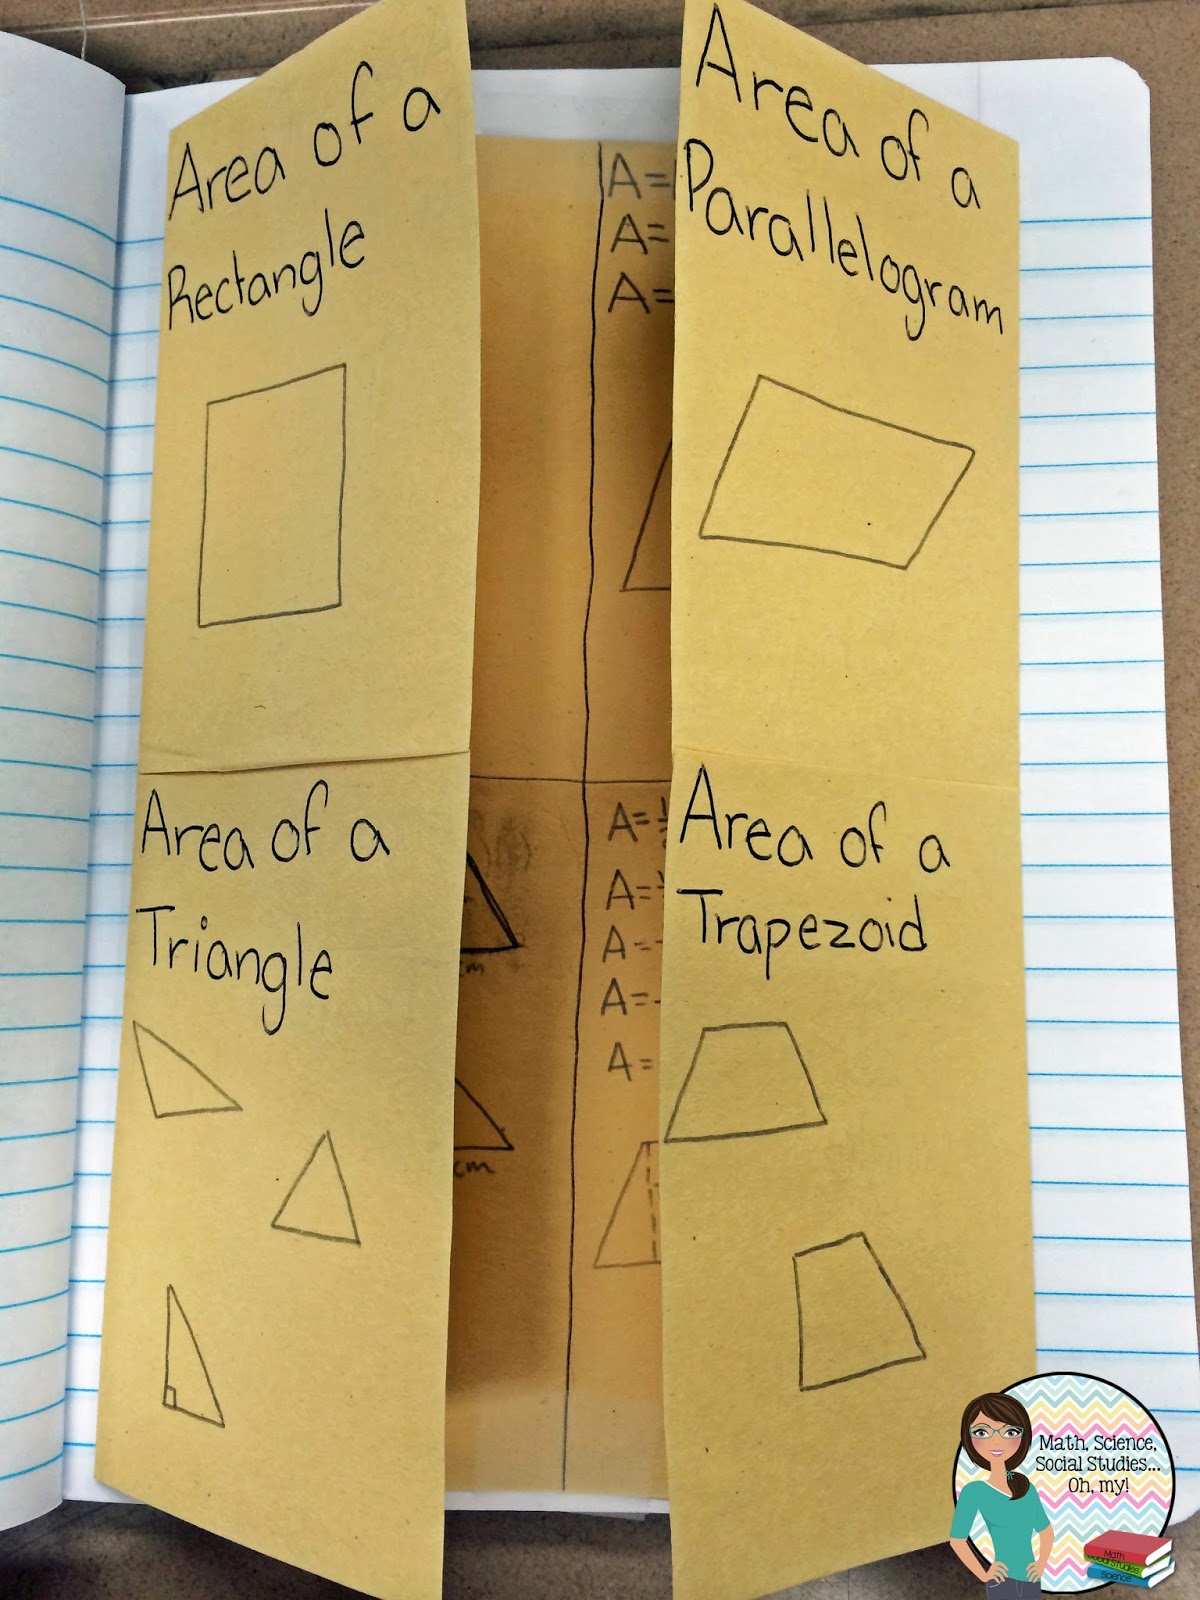 Area of a
Rectangle
Area of a
Parallelogram
A=
A=
A=
Area of a
Triangle
Area of a
Trapezoid
cm
cm
A=
A=
A=
A=
A=
Math, Science,
Social Studies...
Oh, my!
Math
Social Studies
Science